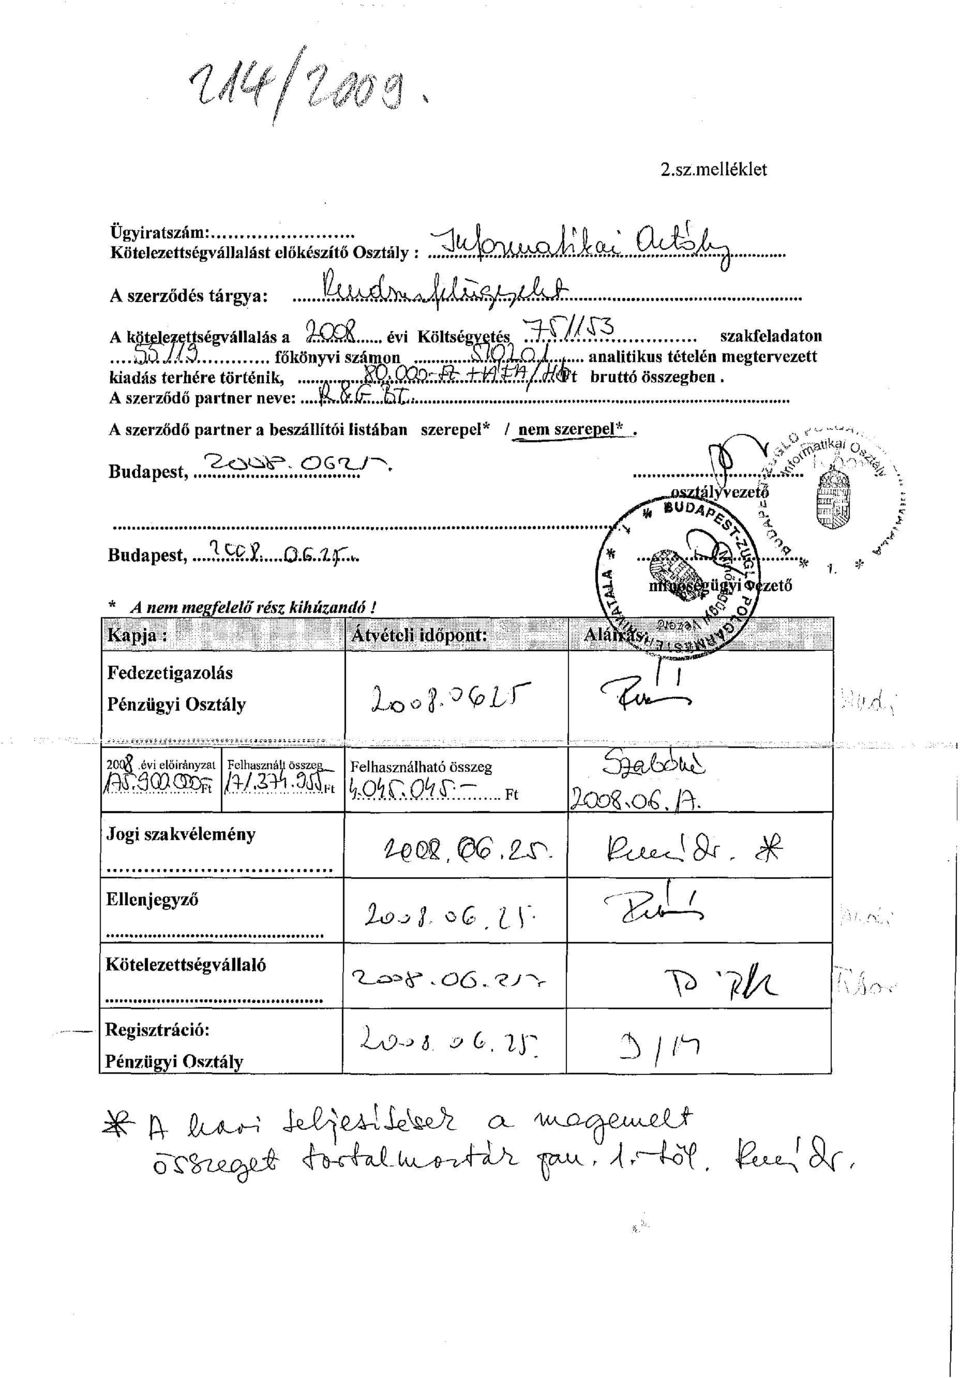 214/2009.
2.sz.melléklet
Ügyiratszám:..........................
Kötelezettségvállalást előkészítő Osztály : Informatikai Osztály
A szerződés tárgya: Rendszerfelügyelet
A kötelezettségvállalás a 2008. évi Költségvetés 75/1153 szakfeladaton
55/19 főkönyvi számon 51020/ analitikus tételén megtervezett
kiadás terhére történik, 80.000.-Ft + ÁFA/HÓ Ft bruttó összegben .
A szerződő partner neve: R&G BT.
A szerződő partner a beszállítói listában szerepel* / nem szerepel* .
Budapest, 2008. 0625.
osztályvezető
Budapest, 2008. 06.25.
minőségügyi vezető
* BUDAPEST-ZUGLÓ POLGÁRMESTERI HIVATALA * 1
Minőségügyi Vezető
Informatikai Osztály
1. *
* A nem megfelelő rész kihúzandó !
Kapja : Átvételi időpont: Aláírás:
Fedezetigazolás
Pénzügyi Osztály 2008.0625
2008 .évi előirányzat Felhasznált összeg Felhasználható összeg Szabóné
175.900.000Ft 171.374.955Ft 4.045.045.- Ft 2008.06.17.
Jogi szakvélemény 2008.06.25. dr. *
Ellenjegyző 2008. 06.25.
Kötelezettségvállaló 2008.06.25.
Regisztráció:
Pénzügyi Osztály 2008 06.25.
* A havi teljesítések a megemelt
összeget tartalmazták jan. 1.-től. dr.